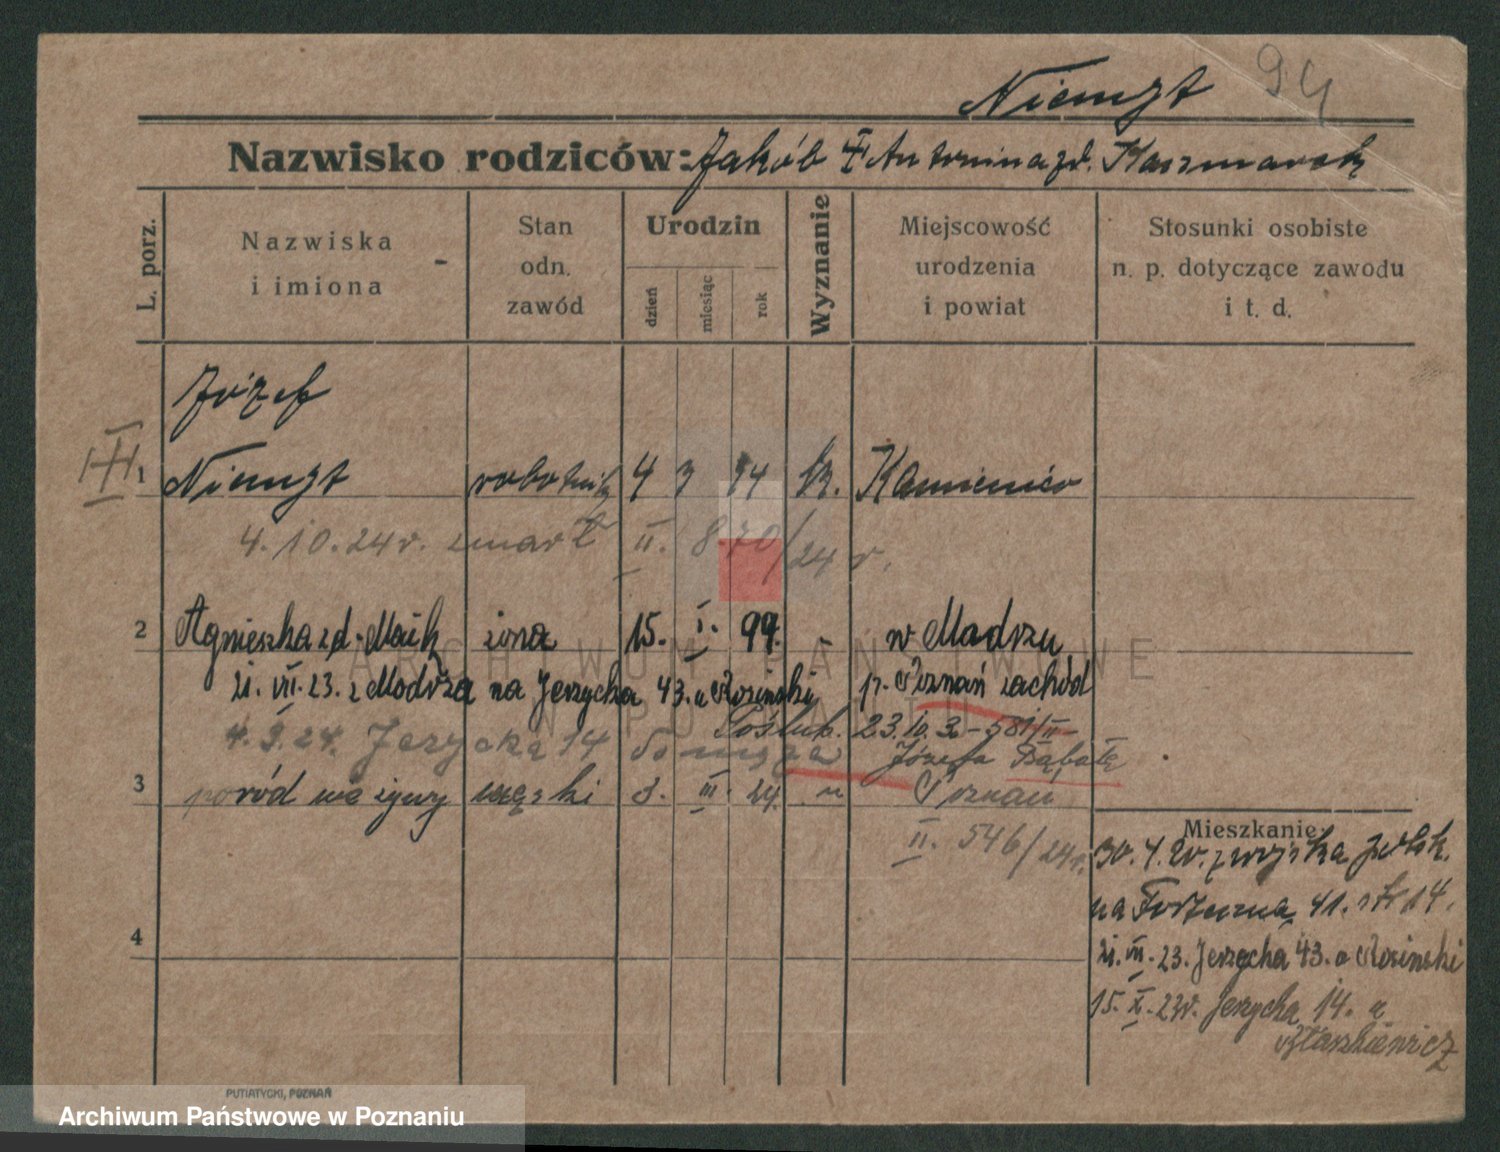 Niemzt 94
Nazwisko rodziców: Jakób i Antonina zd. Kaczmarek
L. porz.
Nazwiska i imiona
Stan odn. zawód
Urodzin
dzień
miesiąc
rok
Wyznanie
Miejscowość urodzenia i powiat
Stosunki osobiste n. p. dotyczące zawodu i t. d.
Józef
III 1 Niemzt robotnik 4 3 94 k. Kamieniec
4.10.24 r. zmarł II. 870/24 r.
2 Agnieszka zd. żona 15. I. 99. " w Modrzu
21. VII. 23. z Modrza na Jeżycka 43. u Rosinski p. Poznań zachód
Poślub. 23.10.32 - 581/II
4.3.24. Jeżycka 14 do męża Józefa Bąbałę
3 poród nieżywy męski 3. III. 24. " Poznań
II. 546/24 r.
Mieszkanie
30.4.20. z wojska polsk.
na Forteczna 41. str 14.
4
21. VII. 23. Jeżycka 43. u Rosinski
15. X. 23 r. Jeżycka 14. u
Błaszkiewicz
ARCHIWUM PAŃSTWOWE
W POZNANIU
PUTIATYCKI, POZNAŃ
Archiwum Państwowe w Poznaniu